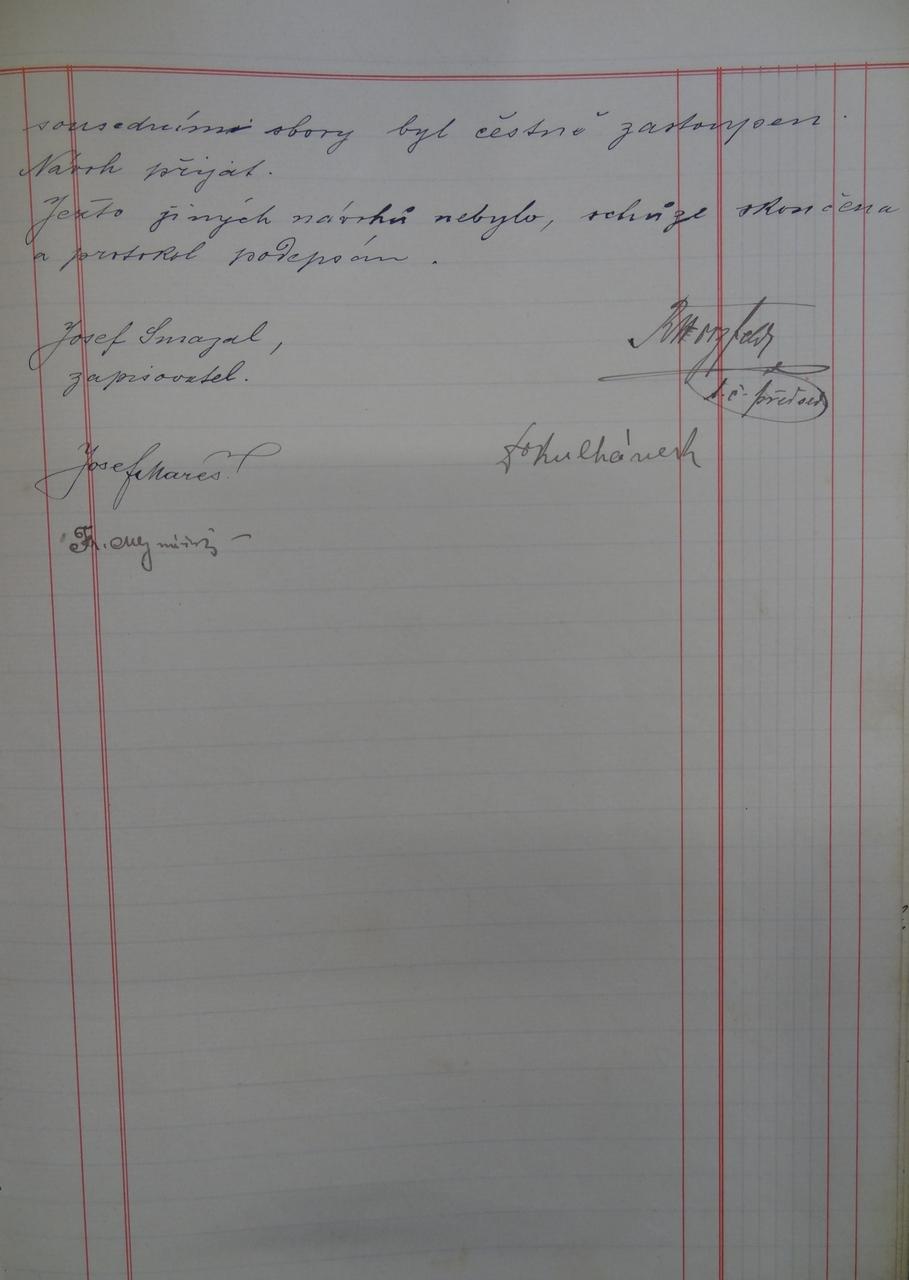 sousedními sbory byl čestně zastoupen.
Návrh přijat.
Ježto jiných návrhů nebylo, schůze skončena
a protokol podepsán.
Josef Smazal,
zapisovatel.
t. č. předseda
Josef Mareš.
Kulhánek
Fr.